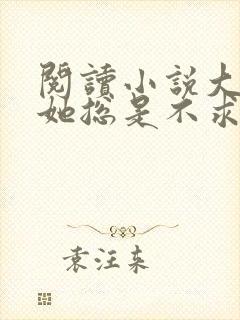 閱讀小說大
她總是不求
袁汪东